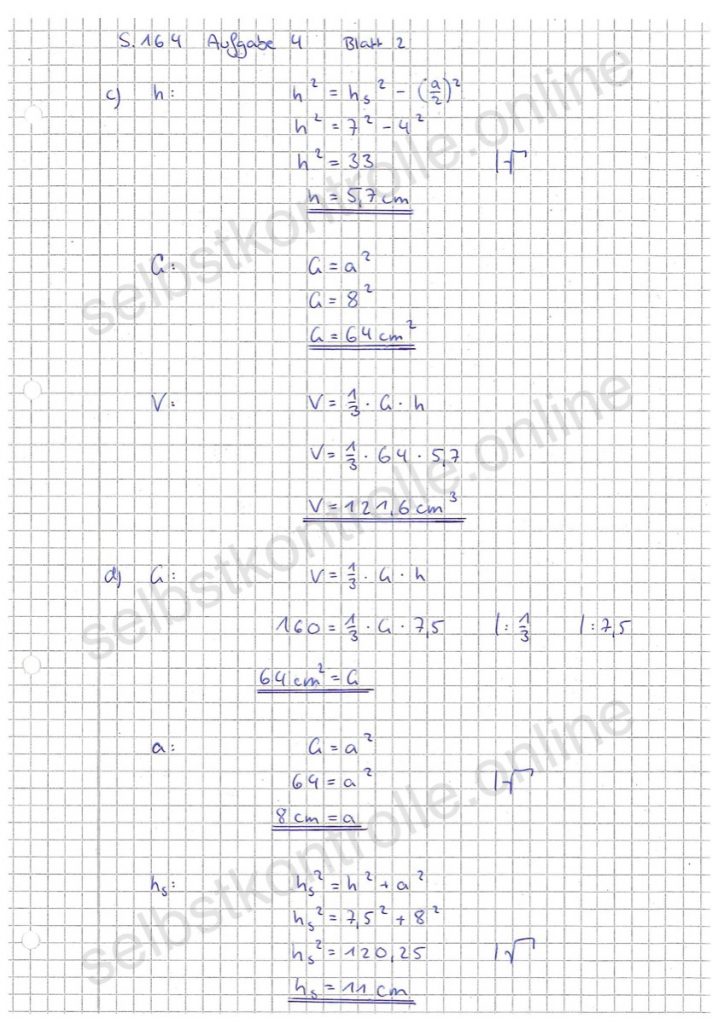 S. 164 Aufgabe 4 Blatt 2
c) h: h² = hₛ² - (a/2)²
h² = 7² - 4²
h² = 33 |√
h = 5,7 cm
G: G = a²
G = 8²
G = 64 cm²
V: V = 1/3 · G · h
V = 1/3 · 64 · 5,7
V = 121,6 cm³
d) G: V = 1/3 · G · h
160 = 1/3 · G · 7,5 |: 1/3 |: 7,5
64 cm² = G
a: G = a²
64 = a² |√
8 cm = a
hₛ: hₛ² = h² + a²
hₛ² = 7,5² + 8²
hₛ² = 120,25 |√
hₛ = 11 cm
selbstkontrolle.online
selbstkontrolle.online
selbstkontrolle.online